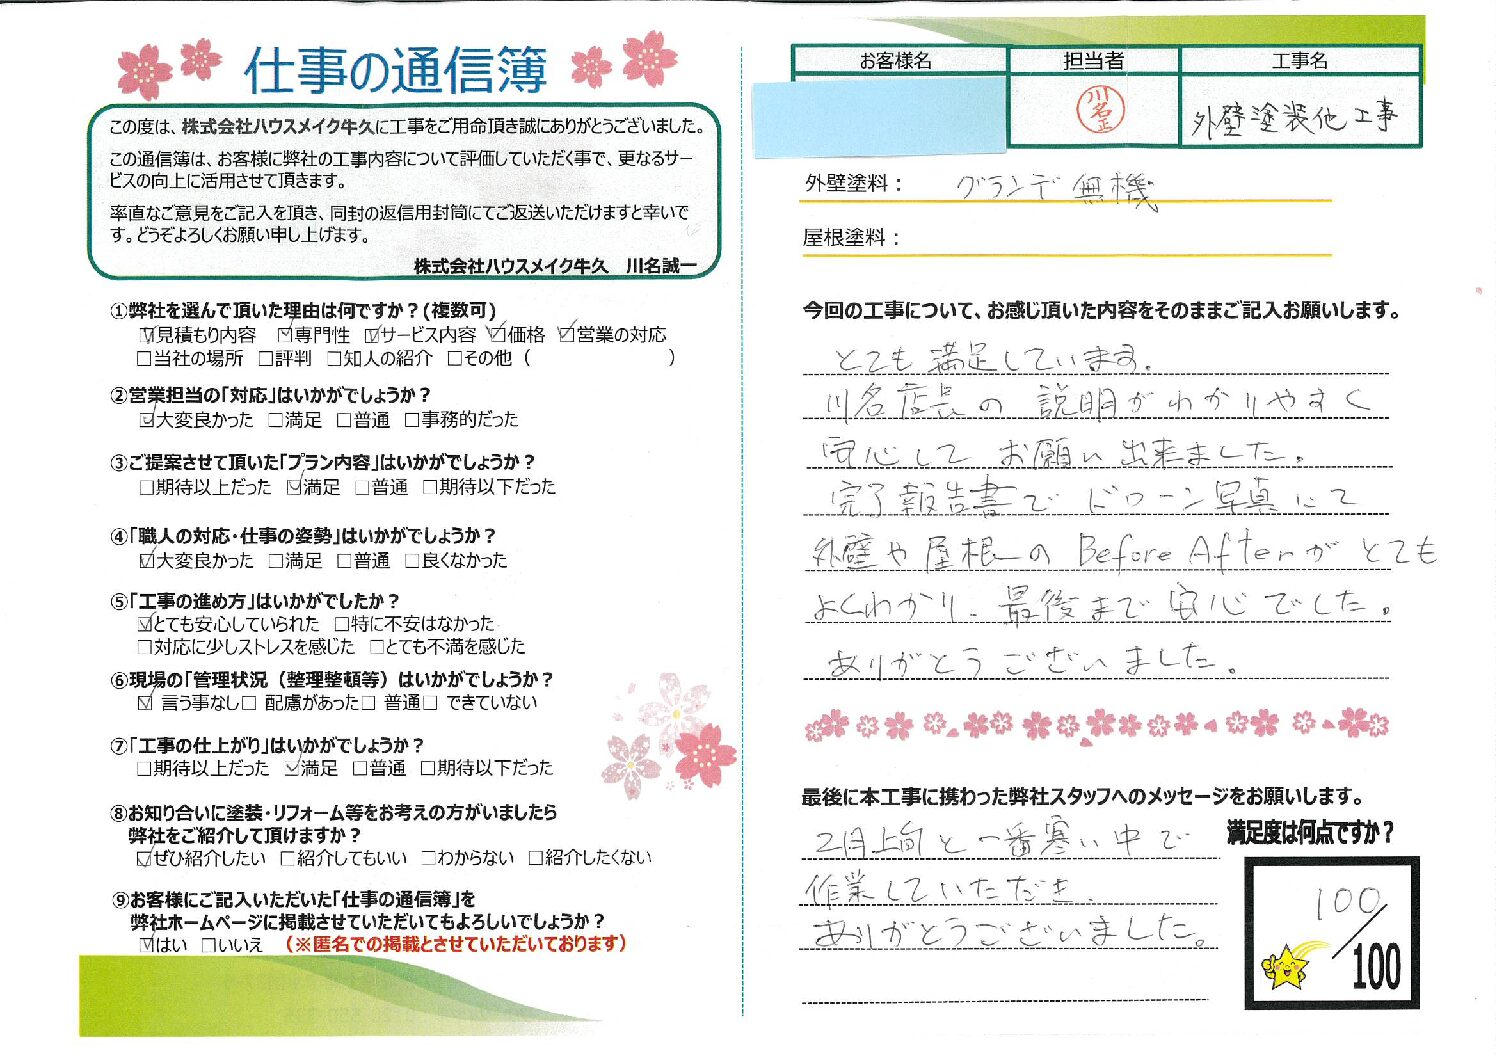 仕事の通信簿
この度は、株式会社ハウスメイク牛久に工事をご用命頂き誠にありがとうございました。
この通信簿は、お客様に弊社の工事内容について評価していただく事で、更なるサー
ビスの向上に活用させて頂きます。
率直なご意見をご記入を頂き、同封の返信用封筒にてご返送いただけますと幸いで
す。どうぞよろしくお願い申し上げます。
株式会社ハウスメイク牛久 川名誠一
①弊社を選んで頂いた理由は何ですか？(複数可)
☑見積もり内容 ☑専門性 ☑サービス内容 ☑価格 ☑営業の対応
□当社の場所 □評判 □知人の紹介 □その他（ ）
②営業担当の「対応」はいかがでしょうか？
☑大変良かった □満足 □普通 □事務的だった
③ご提案させて頂いた「プラン内容」はいかがでしょうか？
□期待以上だった ☑満足 □普通 □期待以下だった
④「職人の対応・仕事の姿勢」はいかがでしょうか？
☑大変良かった □満足 □普通 □良くなかった
⑤「工事の進め方」はいかがでしたか？
☑とても安心していられた □特に不安はなかった
□対応に少しストレスを感じた □とても不満を感じた
⑥現場の「管理状況（整理整頓等）はいかがでしょうか？
☑ 言う事なし□ 配慮があった□ 普通□ できていない
⑦「工事の仕上がり」はいかがでしょうか？
□期待以上だった ☑満足 □普通 □期待以下だった
⑧お知り合いに塗装・リフォーム等をお考えの方がいましたら
弊社をご紹介して頂けますか？
☑ぜひ紹介したい □紹介してもいい □わからない □紹介したくない
⑨お客様にご記入いただいた「仕事の通信簿」を
弊社ホームページに掲載させていただいてもよろしいでしょうか？
☑はい □いいえ （※匿名での掲載とさせていただいております）
お客様名 担当者 工事名
川名正 外壁塗装他工事
外壁塗料： グランデ無機
屋根塗料：
今回の工事について、お感じ頂いた内容をそのままご記入お願いします。
とても満足しています。
川名店長の説明がわかりやすく
安心してお願い出来ました。
完了報告書でドローン写真にて
外壁や屋根のBefore Afterがとても
よくわかり、最後まで安心でした。
ありがとうございました。
最後に本工事に携わった弊社スタッフへのメッセージをお願いします。
2月上旬と一番寒い中で
作業していただき、
ありがとうございました。
満足度は何点ですか？
100/100